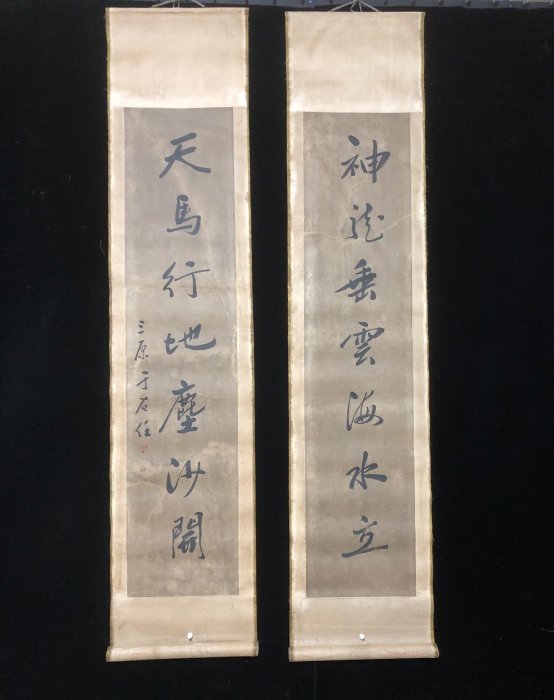 神龙垂雲海水立
天馬行地塵沙開
三原于右任